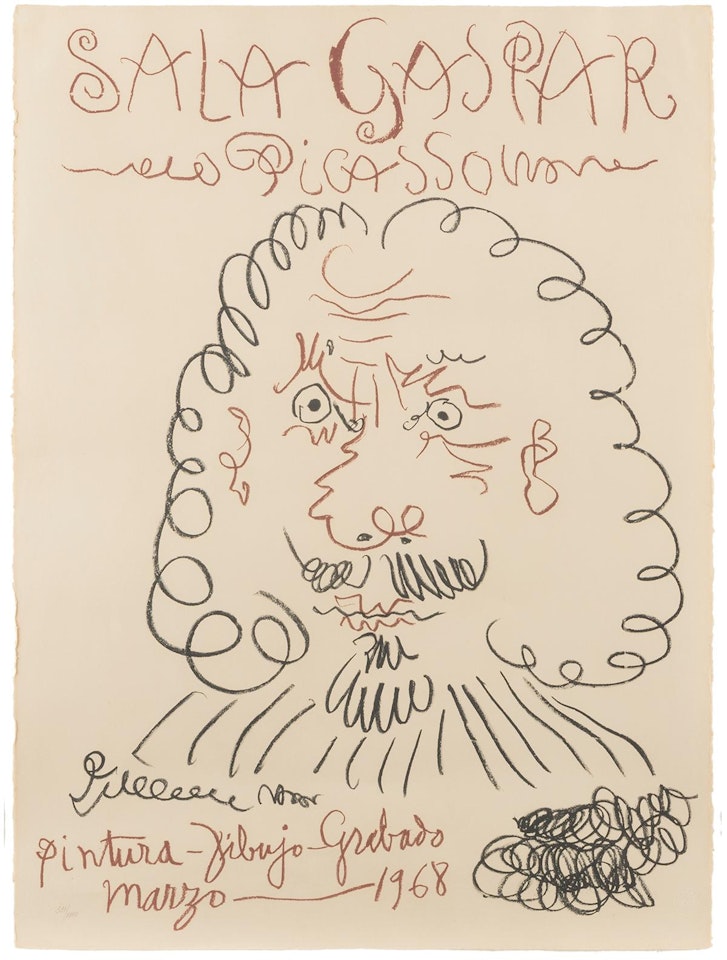 SALA GASPAR
PICASSO
pintura - Dibujo - Grabado
marzo — 1968